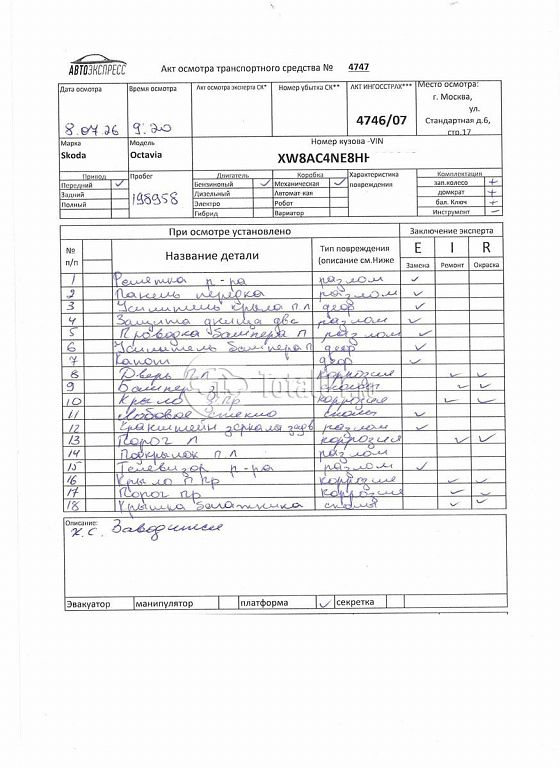 АВТОЭКСПРЕСС
Акт осмотра транспортного средства № 4747
Дата осмотра Время осмотра Акт осмотра эксперта СК* Номер убытка СК** АКТ ИНГОССТРАХ*** Место осмотра:
г. Москва,
ул.
8.07.26 9:20 4746/07 Стандартная д.6,
стр.17
Марка Модель Номер кузова -VIN
Skoda Octavia XW8AC4NE8HH
Привод Пробег Двигатель Коробка Характеристика повреждения Комплектация
Передний ✓ 198958 Бензиновый ✓ Механическая ✓ зап.колесо +
Задний Дизельный Автомат-кая домкрат +
Полный Электро Робот бал. Ключ +
Гибрид Вариатор Инструмент -
При осмотре установлено Заключение эксперта
№ п/п Название детали Тип повреждения (описание см.Ниже E Замена I Ремонт R Окраска
1 Решетка р-ра разлом ✓
2 Панель передка разлом ✓
3 Усилитель крыла п л деф ✓
4 Защита днища двс разлом ✓
5 Проводка бампера п разлом ✓
6 Усилитель бампера п деф ✓
7 Капот деф ✓
8 Дверь п л коррозия ✓ ✓
9 Бампер з сколы ✓ ✓
10 Крыло з пр коррозия ✓ ✓
11 Лобовое стекло сколы ✓
12 Кранштейн зеркала задв разлом ✓
13 Порог л коррозия ✓ ✓
14 Подкрылок п л разлом
15 Телевизор р-ра разлом ✓
16 Крыло п пр коррозия ✓ ✓
17 Порог пр коррозия ✓ ✓
18 Крышка багажника сколы ✓ ✓
Описание:
х.с. Заводится
Эвакуатор манипулятор платформа ✓ секретка
Total